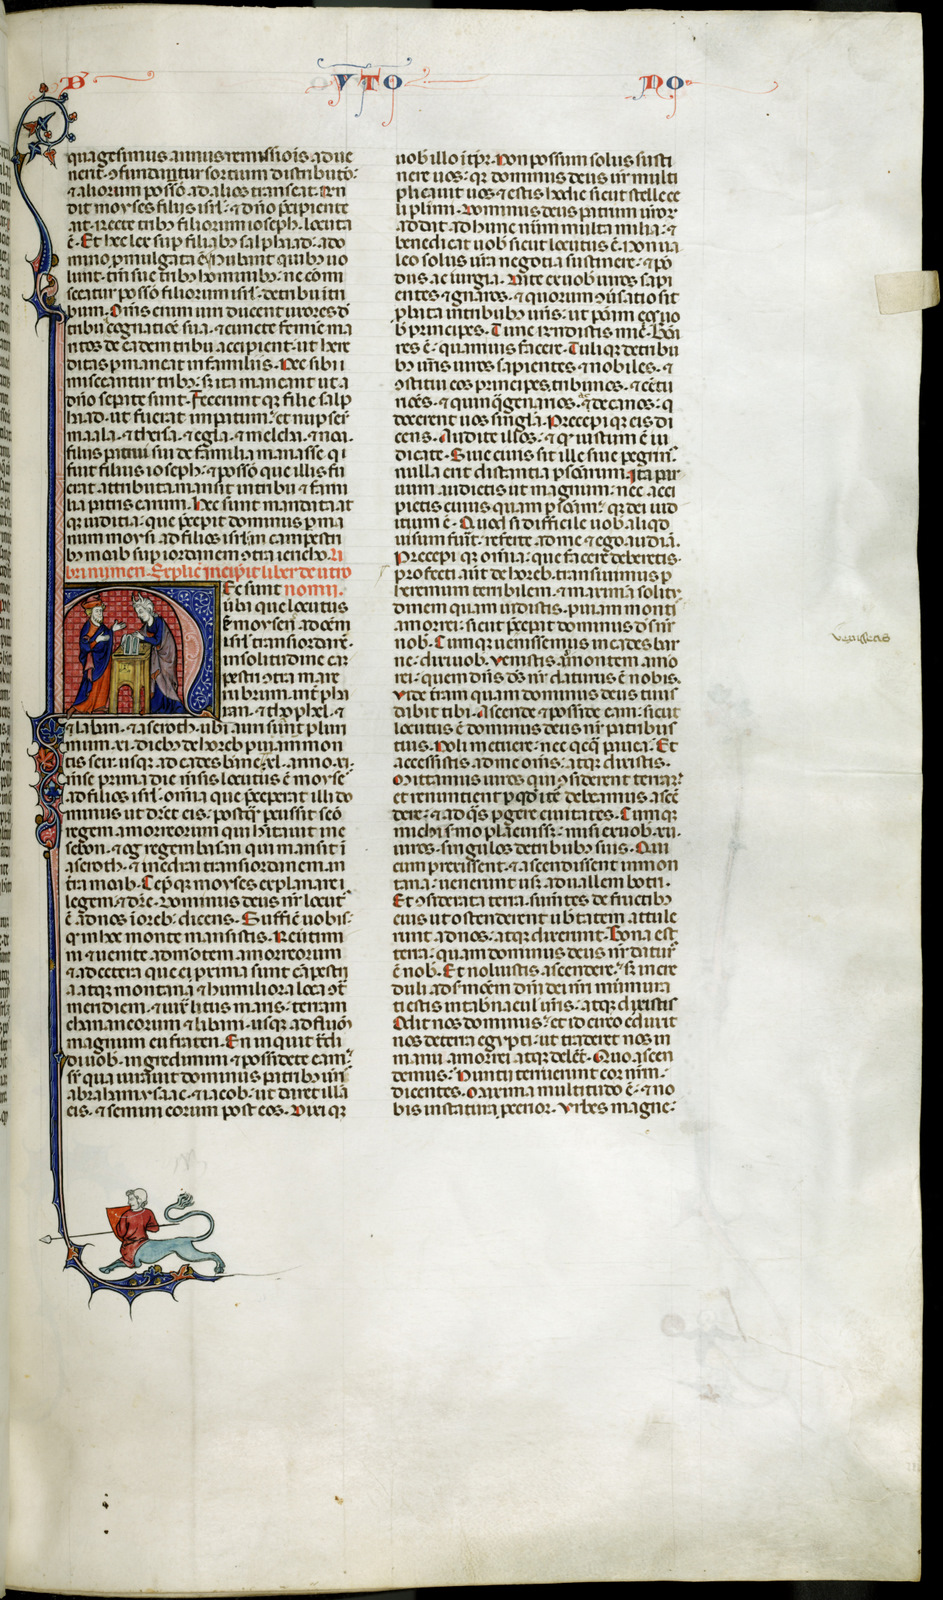 D' UTO NO
quagesimus annus remissiōis adue
nerit ɔfundantur sortium distributō
& aliorum possō ad alios transeat. Rn̄
dit moyses filiis isrl'. & dn̄o p̄cipiente
ait. recte tribȝ filiorum ioseph. locuta
ē. Et hec lex sup filiabȝ salphaad. a do
mino p̄mulgata ē. Nubant quibȝ uo
lunt. tm̄ sue tribȝ hominibȝ. ne cōmi
sceatur possō filiorum isrl' de tribu in tri
bum. Om̄s enim uiri ducent uxores d'
tribu & cognatiōe sua. & cuncte femīe ma
ritos de eadem tribu accipient. ut here
ditas p̄maneat in familiis. Nec sibi
misceantur tribȝ. s; ita maneant ut a
dn̄o sepate sunt. Feceruntq̄ filie salp
haad. ut fuerat imp̄atum. et nupser̄
maala. & thersa. & egla. & melcha. & noa.
filiis patrui sui de familia manasse qi
fuit filius ioseph. & possō que illis fu
erat attributa mansit in tribu & fami
lia patris earum. Hec sunt mandata at
q̄ iudicia. que p̄cepit dominus p̄ ma
num moysi ad filios isrl' in campestri
bȝ moab sup iordanem ɔtra iericho. Li
bri numeri. Explic̄ incipit liber deutro
nomii.
Ec sunt
ūba que locutus
ē moyses ad oēm
isrl' transiordanē.
in solitudine cam
pestri ɔtra mare
rubrum. int̄ pha
ran. & thophel. &
& laban. & aseroth. ubi auri sunt plurī
mum. xi. diebȝ de horeb p̄ uiam mon
tis seir. usq̄ ad cades barne. xl. anno. xi.
mēse prima die mēsis locutus ē moyses
ad filios isrl'. om̄ia que p̄ceperat illi do
minus ut dic̄et eis. postq̄ p̄cussit seō
regem amorreorum qui hītauit in e
sebon. & og regem basan qui mansit ī
aseroth. & in edrai trans iordanem in
t̄ra moab. Cep̄q̄ moyses explanare
legem. & dic̄e. Dominus deus nr̄ locut'
ē ad nos ī oreb. dicens. Sufficē uobis.
q̄ in hoc monte mansistis. Reūtimi
ni & uenite ad mōtem amorreorum
& ad cetera que ei p̄xima sunt cāpestri
a atq̄ montana & humiliora loca ɔt̄
meridiem. & iux̄ litus maris. terram
chananeorum & libani. usq̄ ad fluuiū
magnum eufraten. En inquit t̄di
di uob. ingredimini & possidete eam.
sr̄ qua iurauit dominus patribȝ urīs
abraham ysaac. & iacob. ut daret illā
eis. & semini eorum post eos. Dixiq̄
uob illo ī tp̄r. Non possum solus susti
nere uos. q̄ dominus deus ur̄ multi
plicauit uos. & estis hodie sicut stelle ce
li plurimi. Dominus deus patrum ur̄orum
addat ad hunc num̄um multa milia. &
benedicat uob sicut locutus ē. Non ua
leo solus ur̄a negotia sustinere. & pō
dus ac iurgia. Date ex uob uiros sapi
entes & gnaros. & quorum ɔūsatio sit
p̄bata in tribubȝ ur̄is. ut ponā eos uo
b principes. Tunc rn̄distis mic̄. Bon̄
res ē. quam uis facere. Tuliq̄ de tribu
bȝ ur̄is uiros sapientes & nobiles. &
ɔstitui eos principes tribunos. & cētu
riōes. & quinq̄genarios. & decanos. q̄
docerent uos singl'a. Precepiq̄ eis di
cens. Audite illos. & q̄ iustum ē iu
dicate. Siue ciuis sit ille siue pegrin'.
nulla erit distantia p̄sonarum. Ita par
uum audietis ut magnum. nec acci
pietis cuius quam p̄sonā. q̄ dei iud
icium ē. Quod si difficile uob aliqd
uisum fuer̄. referte ad me & ego audiā.
Precepiq̄ om̄ia. que facere deberetis.
profecti aūt de horeb. transiuimus p
heremum terribilem. & maximā solitu
dinem quam uidistis. p uiam monti
amorrei. sicut p̄cepit dominus d's nr̄
nob. Cumq̄ uenissemus in cades bar
ne. dixi uob. Venistis ad montem amo
rei. quem dn̄s d's nr̄ daturus ē nobis.
Vide t̄ram quam dominus deus tuus
dabit tibi. Ascende & posside eam. sicut
locutus ē dominus deus nr̄ patribȝ
tuis. Noli metuere. nec q̄cq̄ pauea. Et
accessistis ad me om̄s. atq̄ dixistis.
Mittamus uiros qui ɔsiderent terrā.
et renuntient p̄ qd iter debeamus ascē
dere. & ad q̄s p̄gere ciuitates. Cumq̄
michi s̄mo placuisset. misi ex uob. xii.
uiros. singulos de tribubȝ suis. Qui
cum p̄rexissent. & ascendissent in mon
tana. uenerunt usq̄ ad uallem botri.
Et ɔsiderata terra. sumētes de fructibȝ
eius ut ostenderent ubertatem attule
runt ad nos. atq̄ dixerunt. Bona est
terra. quam dominus deus nr̄ datur'
ē nob. Et noluistis ascendere. s; incre
duli ad s̄monem dn̄i dei nr̄i murmura
ti estis in tab̄naculis ur̄is. atq̄ dixistis
Odit nos dominus. et idcirco eduxit
nos de terra egypti. ut traderet nos in
manu amorrei atq̄ delēt. Quo ascen
demus. Nuntii terruerunt cor nr̄m.
dicentes. Maxima multitudo ē. & no
bis in statura p̄cerior. Vrbes magne.